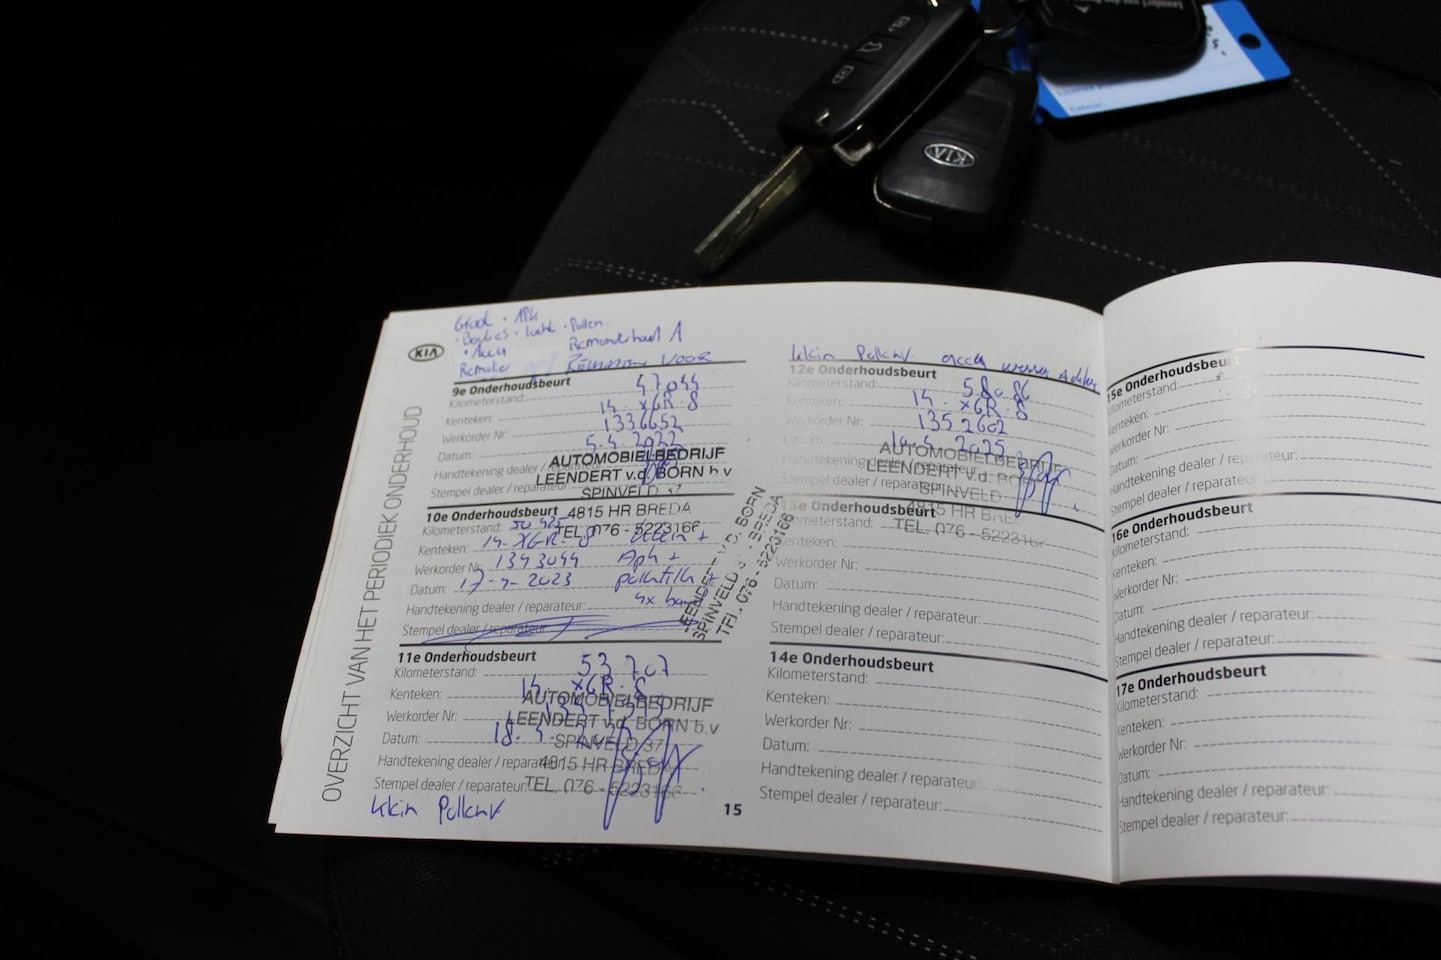 KIA
License
Colour:
Groot · APK
Bougies · lucht · Pollen
Accu Remonderhoud A
KIA
Remolie Remmen VOOR
9e Onderhoudsbeurt
Kilometerstand: 47044
Kenteken: 14-XGR-8
Werkorder Nr: 1336652
Datum: 5-4-2022
Handtekening dealer / reparateur:
Stempel dealer / reparateur:
AUTOMOBIELBEDRIJF
LEENDERT v.d. BORN b v
SPINVELD 37
4815 HR BREDA
TEL. 076 - 5223166
10e Onderhoudsbeurt
Kilometerstand: 50 425
Kenteken: 14-XGR-8
Werkorder Nr: 1343044 Apk +
Datum: 17-4-2023
Handtekening dealer / reparateur:
Stempel dealer / reparateur:
LEENDERT V.D. BORN
SPINVELD BREDA
TEL. 076 - 5223166
11e Onderhoudsbeurt
Kilometerstand: 53 707
Kenteken: 14-XGR-8
Werkorder Nr:
Datum: 18-4-
Handtekening dealer / reparateur:
Stempel dealer / reparateur:
AUTOMOBIELBEDRIJF
LEENDERT v.d. BORN b.v
SPINVELD 37
4815 HR BREDA
TEL. 076 - 5223166
klein Pollenf
15
OVERZICHT VAN HET PERIODIEK ONDERHOUD
klein Pollenf. accu wisser Achter
12e Onderhoudsbeurt
Kilometerstand: 58086
Kenteken: 14-XGR-8
Werkorder Nr: 1352602
Datum: 14-4-2025
Handtekening dealer / reparateur:
Stempel dealer / reparateur:
AUTOMOBIELBEDRIJF
LEENDERT v.d. BORN
SPINVELD
4815 HR BREDA
TEL. 076 - 5223166
13e Onderhoudsbeurt
Kilometerstand:
Kenteken:
Werkorder Nr:
Datum:
Handtekening dealer / reparateur:
Stempel dealer / reparateur:
14e Onderhoudsbeurt
Kilometerstand:
Kenteken:
Werkorder Nr:
Datum:
Handtekening dealer / reparateur:
Stempel dealer / reparateur:
15e Onderhoudsbeurt
Kilometerstand:
Kenteken:
Werkorder Nr:
Datum:
Handtekening dealer / reparateur:
Stempel dealer / reparateur:
16e Onderhoudsbeurt
Kilometerstand:
Kenteken:
Werkorder Nr:
Datum:
Handtekening dealer / reparateur:
Stempel dealer / reparateur:
17e Onderhoudsbeurt
Kilometerstand:
Kenteken:
Werkorder Nr:
Datum:
Handtekening dealer / reparateur:
Stempel dealer / reparateur: